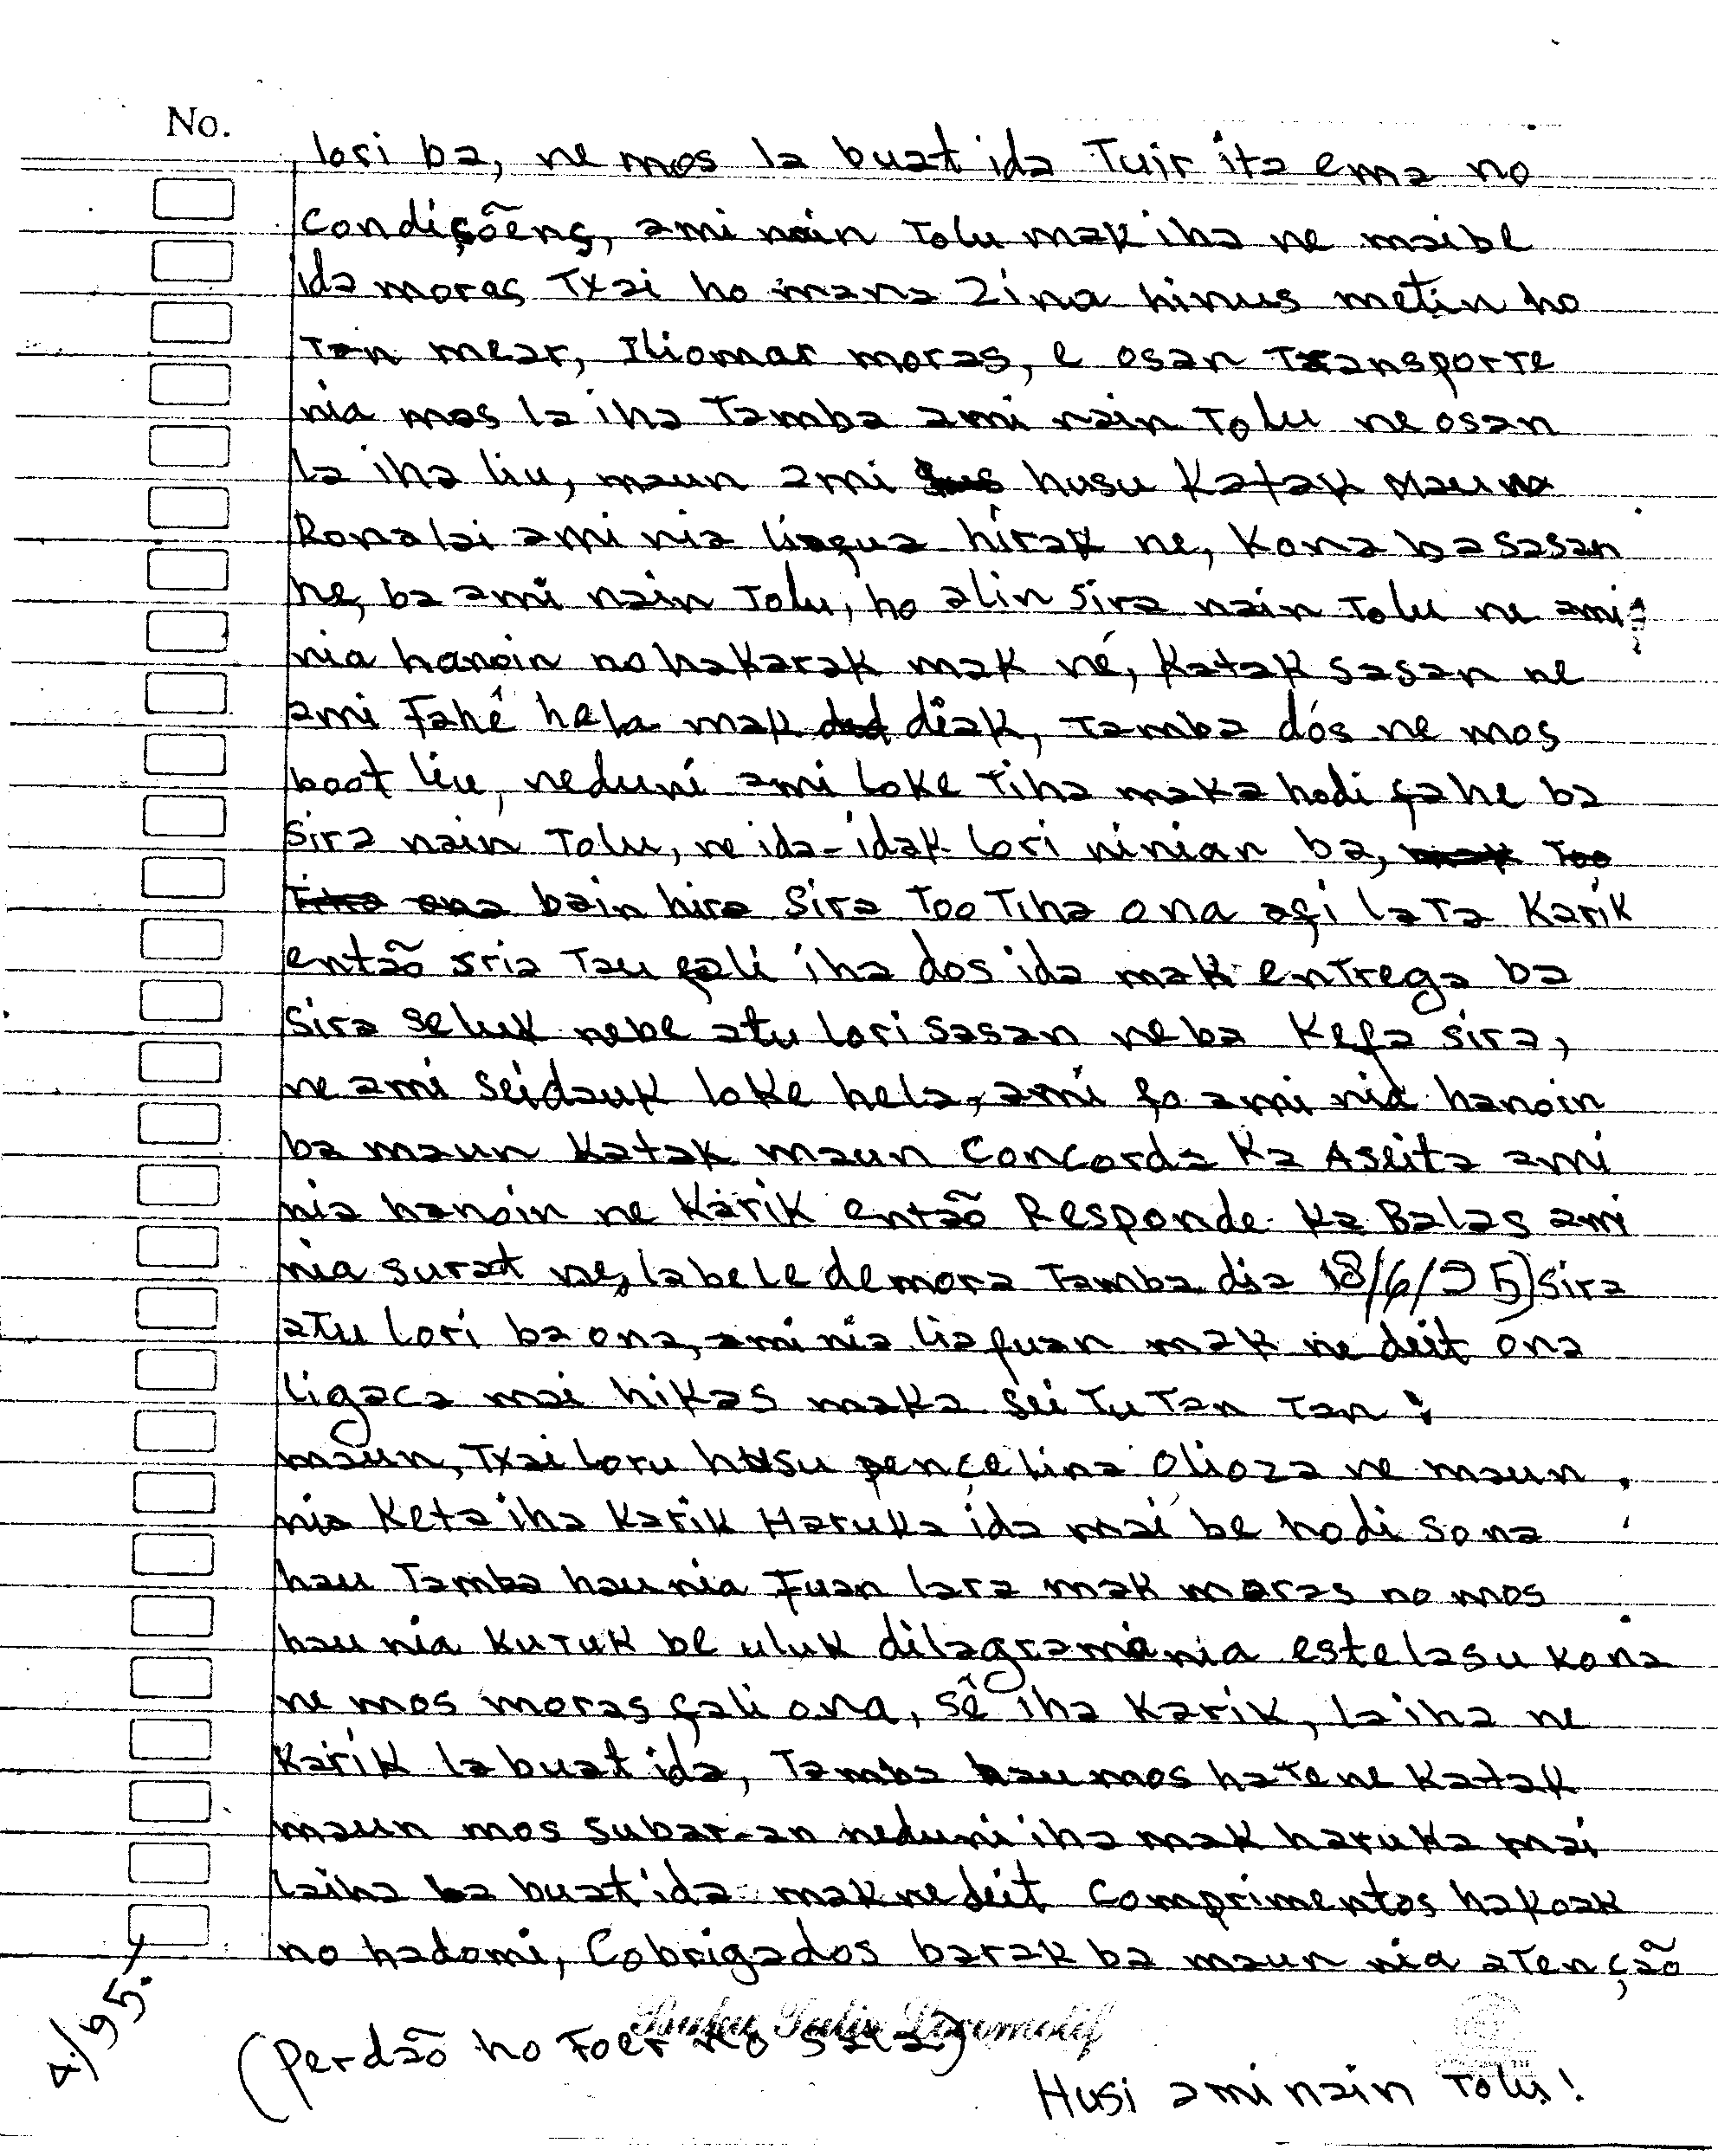 No.
lori ba, ne mos la buat ida Tuir ita ema no
condiçõens, ami nain Tolu mak iha ne maibe
ida moras Txai ho mana Zina hinus metin ho
Tan mear, Iliomar moras, e osan Transporte
nia mos la iha Tamba ami nain Tolu ne osan
la iha liu, maun ami husu Katak Maun
Ronalai ami nia lingua hirak ne, Kona ba sasan
ne, ba ami nain Tolu, ho alin sira nain Tolu ne ami
nia hanoin no hakarak mak né, Katak sasan ne
ami Fahé hela mak diak, Tamba dós ne mos
boot liu, neduni ami loke Tiha maka hodi fahe ba
sira nain Tolu, ne ida-idak lori ninian ba, Too
bain hira Sira Too Tiha ona afi lata Karik
então sria Tau fali iha dos ida mak entrega ba
Sira seluk nebe atu lori sasan neba Kefa sira,
ne ami seidauk loke hela, ami fo ami nia hanoin
ba maun Katak maun Concorda Ka Aseita ami
nia hanoin ne Karik então Responde Ka Balas ami
nia surat ne, labele demora Tamba dia 18/6/95) sira
atu lori ba ona, ami nia liafuan mak ne deit ona
ligaca mai hikas maka sei Tutan Tan.
maun, Txai loru husu pencelina Olioza ne maun
nia Keta iha Karik Haruka ida mai be hodi sona
hau Tamba hau nia Fuan lara mak moras no mos
hau nia KuTuK be uluk dilagrama nia estelasu kona
ne mos moras fali ona, sê iha Karik, la iha ne
Karik la buat ida, Tamba hau mos hatene Katak
maun mos subar-an neduni iha mak haruka mai
laiha ba buat ida mak ne deit Comprimentos hakoak
no hadomi, Cobrigados barak ba maun nia atenção
(Perdão ho Foer no
Buku Tulis Locomotif
4/95.
Husi ami nain Tolu!